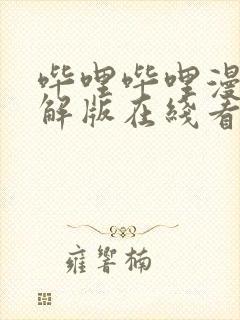 哔哩哔哩漫
解版在线看
雍響楠